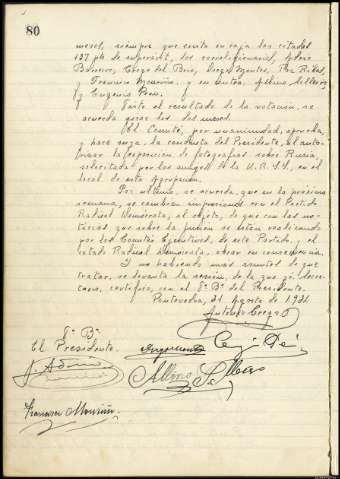 80
meses, siempre que exista en caja los citados
137 pts de superavit, los correligionarios, Adrio
Barreiro, Crego del Rio,
y Francisco Mouriño, y en contra, Albino Sobreiro,
y Eugenio Poza.
Visto el resultado de la votacion, se
acuerda girar los dos meses.
El Comité, por unanimidad, aprueba,
y hace suya, la conducta del Presidente, al auto-
rizar la exposicion de fotografias sobre Rusia,
solicitada por los amigos de la U.R.S.S., en el
local de esta Agrupacion.
Por ultimo, se acuerda, que en la próxima
semana, se cambien impresiones con el Partido
Radical Demócrata, al objeto, de que con las no-
ticias que sobre la fusion se esten realizando
por los Comités Ejecutivos, de este Partido, y el
citado Radical Demócrata, obrar en consecuencia.
Y no habiendo mas asuntos de que
tratar, se levanta la sesion, de la que yó, Secre-
tario, certifico, con el Vº Bº del Presidente.
Pontevedra, 21 Agosto de 193
Antonio Crego
Vº Bº
El Presidente.
J. Adrio
Albino S.
Francisco Mouriño